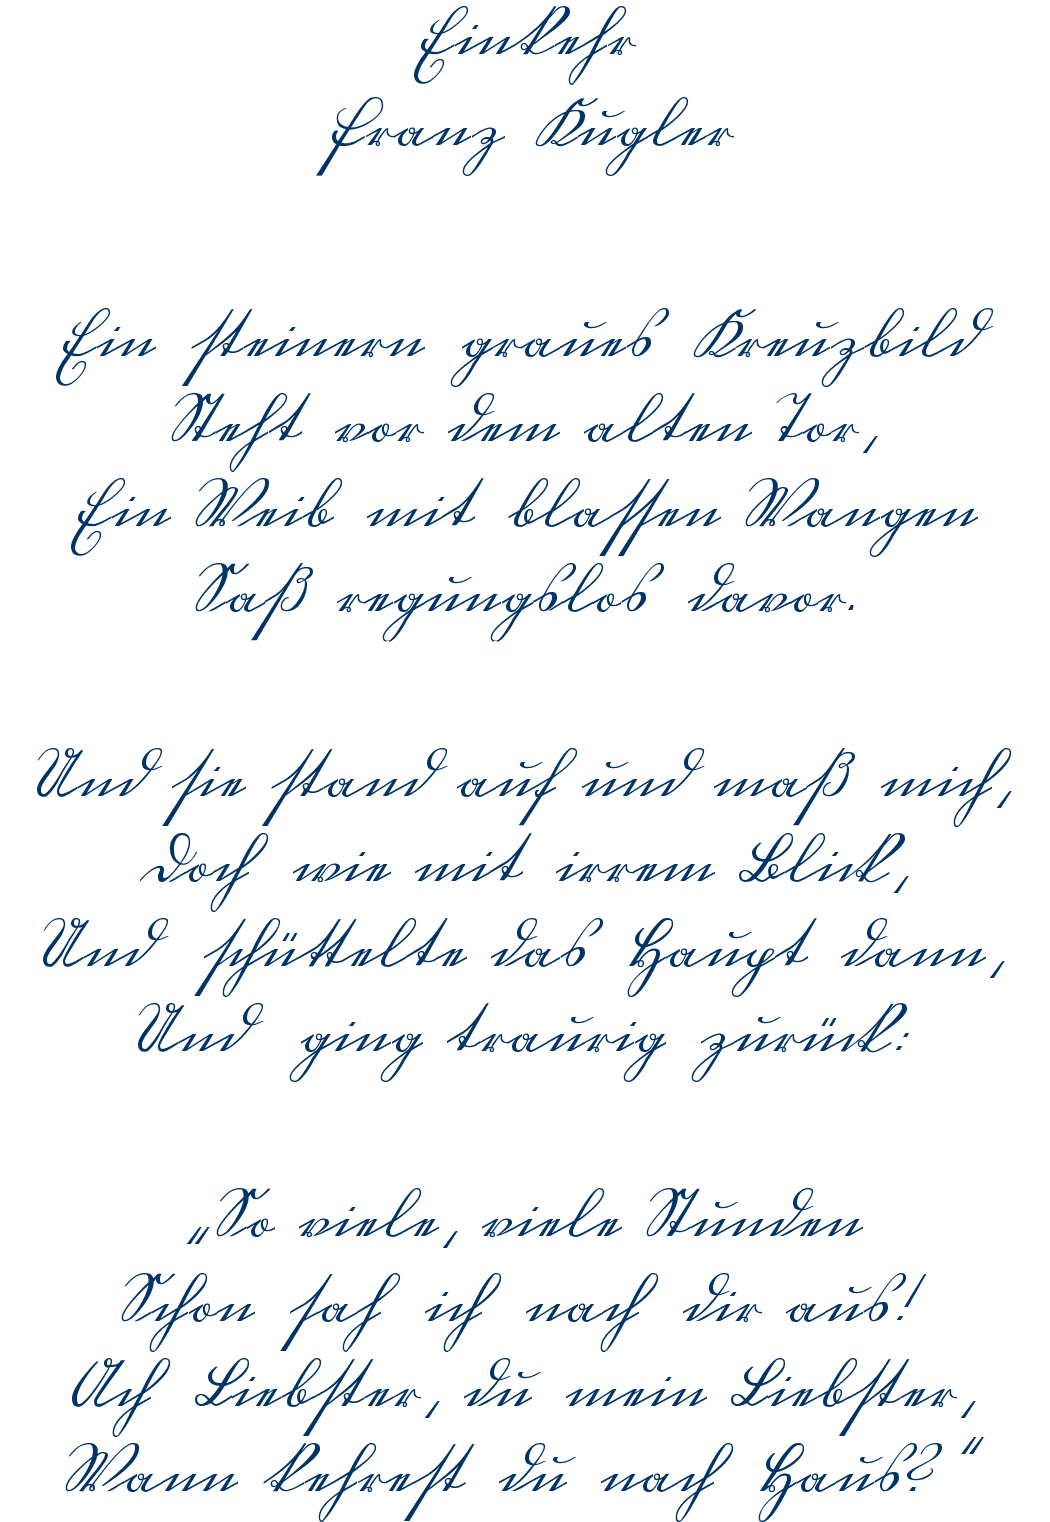 Einkehr
Franz Kugler
Ein steinern graues Kreuzbild
Steht vor dem alten Tor,
Ein Weib mit blassen Wangen
Saß regungslos davor.
Und sie stand auf und maß mich,
Doch wie mit irrem Blick,
Und schüttelte das Haupt dann,
Und ging traurig zurück:
„So viele, viele Stunden
Schon sah ich nach dir aus!
Ach Liebster, du mein Liebster,
Wann kehrest du nach Haus?“